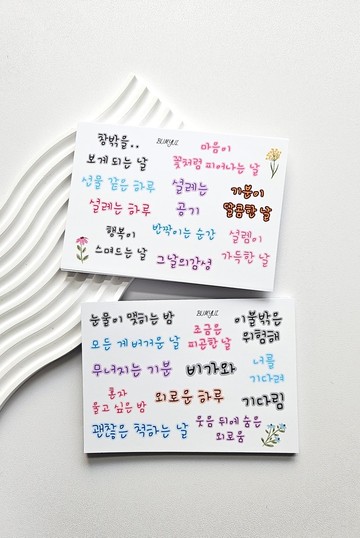 창밖을..
보게 되는 날
마음이
꽃처럼 피어나는 날
선물 같은 하루
설레는
공기
기분이
달콤한 날
설레는 하루
행복이
스며드는 날
반짝이는 순간
그날의 감성
설렘이
가득한 날
눈물이 맺히는 밤
조금은
피곤한 날
이불밖은
위험해
모든 게 버거운 날
무너지는 기분
비가와
너를
기다려
혼자
울고 싶은 밤
외로운 하루
기다림
괜찮은 척하는 날
웃음 뒤에 숨은
외로움